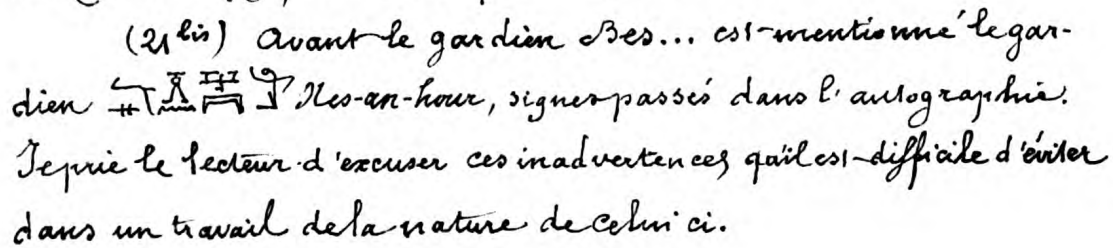 (21 bis) Avant le gardien Bes... est mentionné le gar-
dien Nes-an-hour, signes passés dans l'autographie.
Je prie le lecteur d'excuser ces inadvertences qu'il est difficile d'éviter
dans un travail de la nature de celui ci.